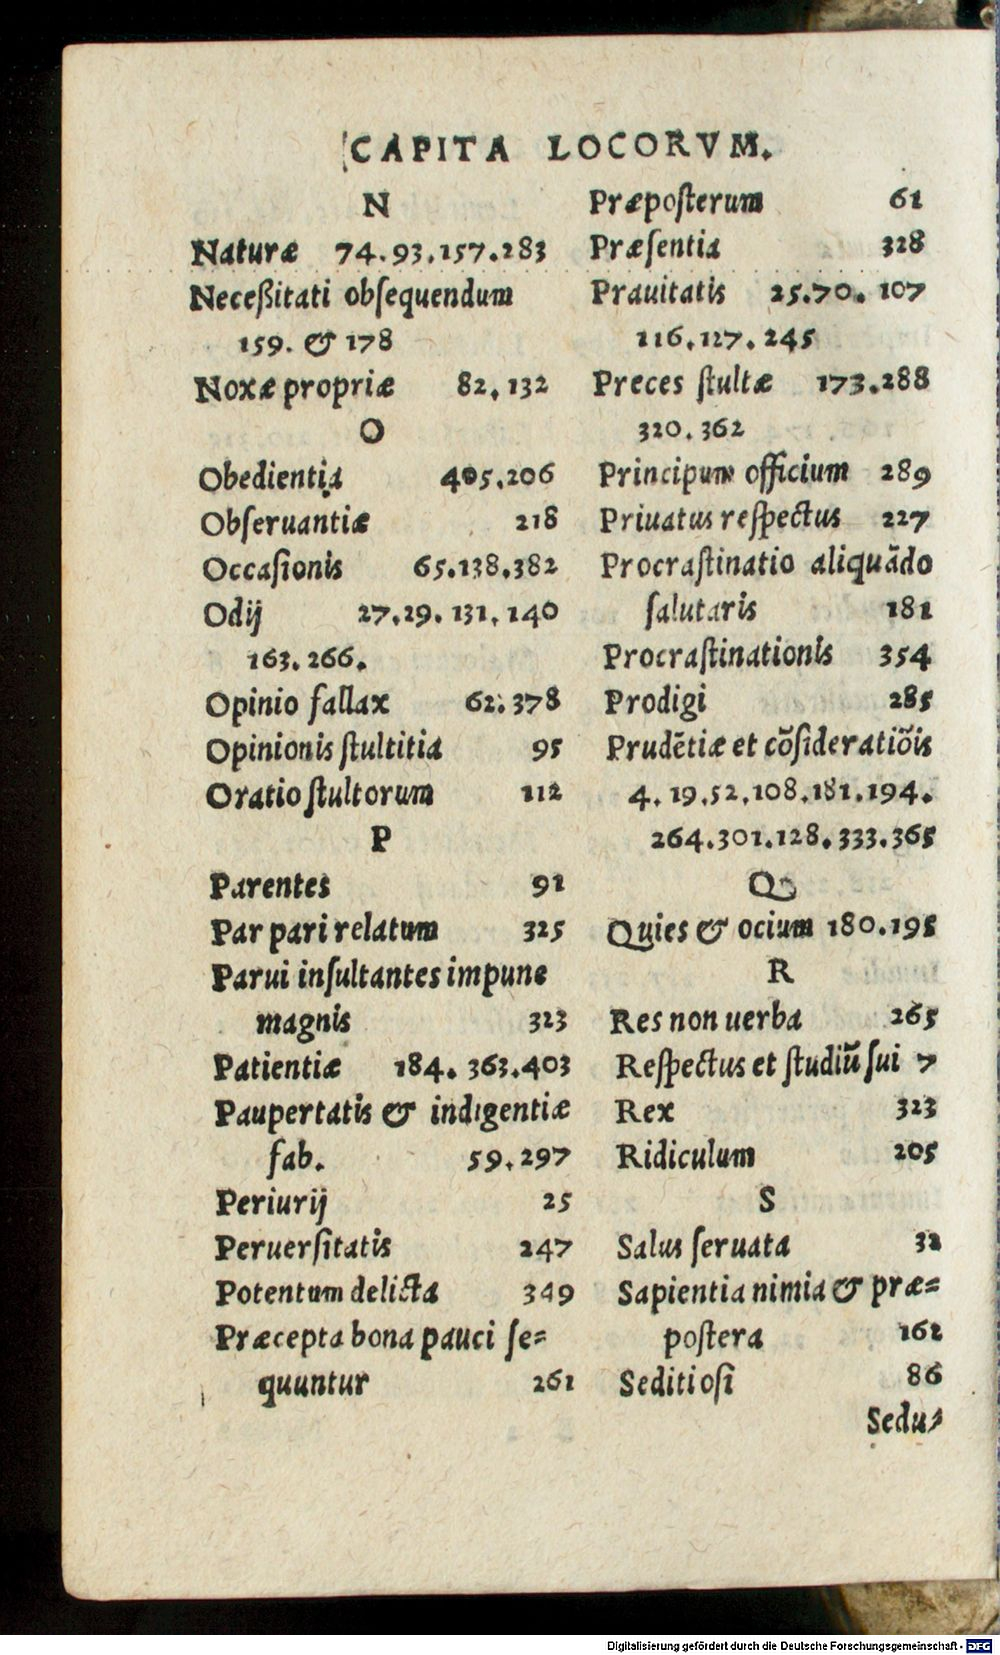 CAPITA LOCORVM.
N
Naturæ 74.93.157.283
Neceßitati obſequendum
159. & 178
Noxæ propriæ 82,132
O
Obedientia 405.206
Obſeruantiæ 218
Occaſionis 65.138.382
Odij 27.29.131.140
163.266.
Opinio fallax 62.378
Opinionis ſtultitia 95
Oratio ſtultorum 112
P
Parentes 91
Par pari relatum 325
Parui inſultantes impune
magnis 323
Patientiæ 184.363.403
Paupertatis & indigentiæ
fab. 59.297
Periurij 25
Peruerſitatis 247
Potentum delicta 349
Præcepta bona pauci ſe=
quuntur 261
Præpoſterum 61
Præſentia 328
Prauitatis 25.70.107
116.127.245
Preces ſtultæ 173.288
320.362
Principum officium 289
Priuatus reſpectus 227
Procraſtinatio aliquãdo
ſalutaris 181
Procraſtinationis 354
Prodigi 285
Prudẽtiæ et cõſideratiõis
4.19.52.108.181.194.
264.301.128.333.365
Q
Quies & ocium 180.195
R
Res non uerba 265
Reſpectus et ſtudiũ ſui 7
Rex 323
Ridiculum 205
S
Salus ſeruata 32
Sapientia nimia & præ=
poſtera 162
Seditioſi 86
Sedu=
Digitalisierung gefördert durch die Deutsche Forschungsgemeinschaft - DFG